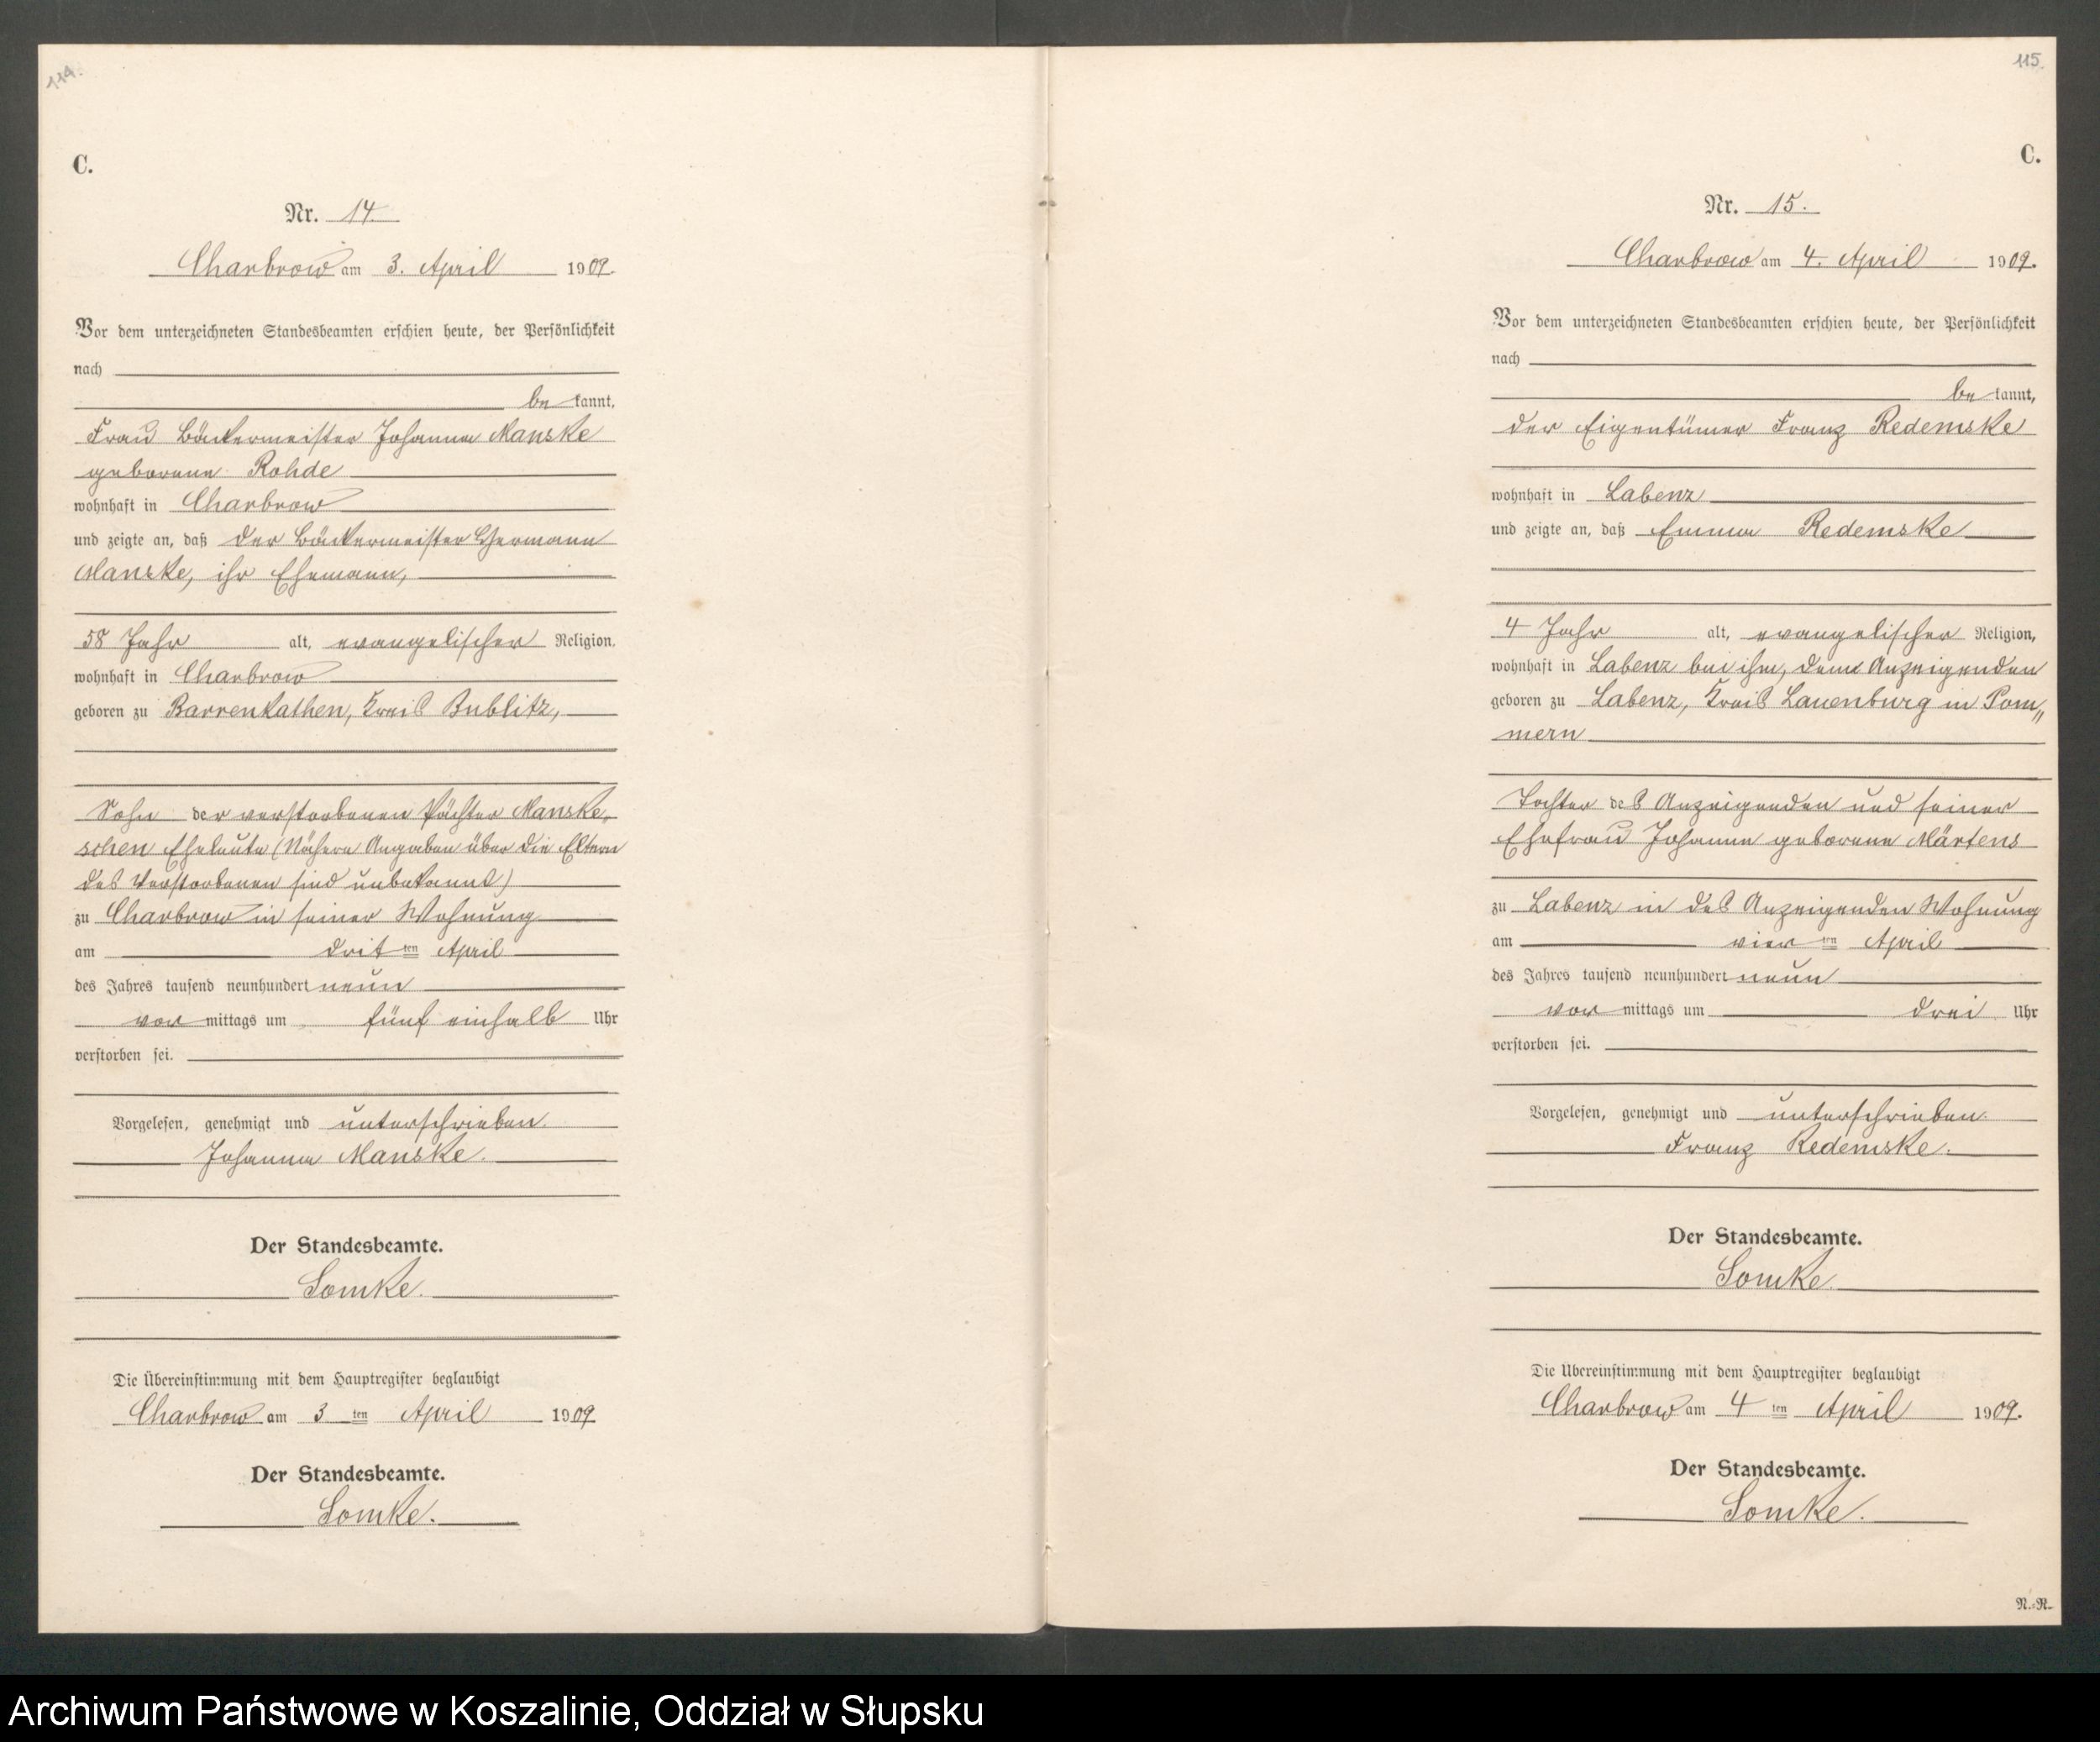 114.
C.
Nr. 14.
Charbrow am 3. April 1909.
Vor dem unterzeichneten Standesbeamten erschien heute, der Persönlichkeit
nach
be kannt,
Frau Bäckermeister Johanna Manske
geborene Rohde
wohnhaft in Charbrow
und zeigte an, daß der Bäckermeister Hermann
Manske, ihr Ehemann,
58 Jahr alt, evangelischer Religion,
wohnhaft in Charbrow
geboren zu Barrenkathen, Kreis Bublitz,
Sohn der verstorbenen Pächter Manske-
schen Eheleute (Nähere Angaben über die Eltern
des Verstorbenen sind unbekannt)
zu Charbrow in seiner Wohnung
am dritten April
des Jahres tausend neunhundert neun
vor mittags um fünf einhalb Uhr
verstorben sei.
Vorgelesen, genehmigt und unterschrieben.
Johanna Manske.
Der Standesbeamte.
Somke.
Die Übereinstimmung mit dem Hauptregister beglaubigt
Charbrow am 3 ten April 1909
Der Standesbeamte.
Somke.
115.
C.
Nr. 15.
Charbrow am 4. April 1909.
Vor dem unterzeichneten Standesbeamten erschien heute, der Persönlichkeit
nach
be kannt,
der Eigentümer Franz Redemske
wohnhaft in Labenz
und zeigte an, daß Emma Redemske
4 Jahr alt, evangelischer Religion,
wohnhaft in Labenz bei ihm, dem Anzeigenden
geboren zu Labenz, Kreis Lauenburg in Pom„
mern
Tochter des Anzeigenden und seiner
Ehefrau Johanna geborene Märtens
zu Labenz in des Anzeigenden Wohnung
am vierten April
des Jahres tausend neunhundert neun
vor mittags um drei Uhr
verstorben sei.
Vorgelesen, genehmigt und unterschrieben.
Franz Redemske.
Der Standesbeamte.
Somke.
Die Übereinstimmung mit dem Hauptregister beglaubigt
Charbrow am 4 ten April 1909.
Der Standesbeamte.
Somke.
N.-R.
Archiwum Państwowe w Koszalinie, Oddział w Słupsku